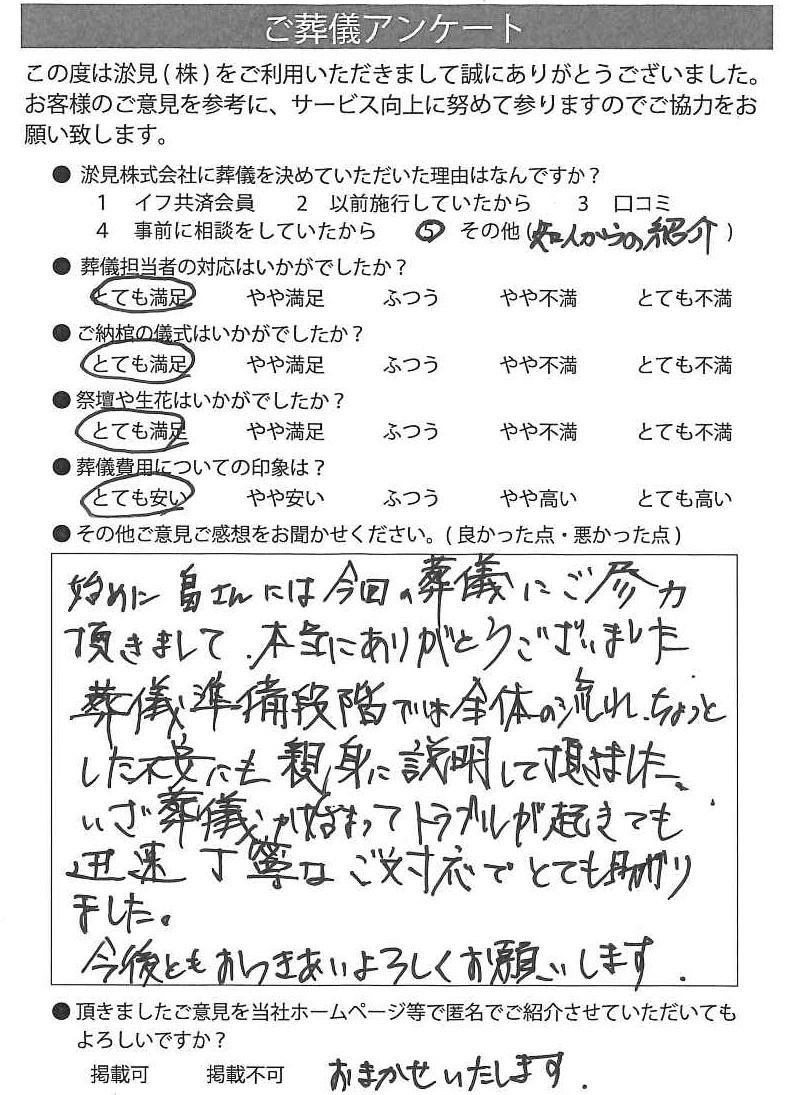 ご葬儀アンケート
この度は淤見(株)をご利用いただきまして誠にありがとうございました。
お客様のご意見を参考に、サービス向上に努めて参りますのでご協力をお
願い致します。
● 淤見株式会社に葬儀を決めていただいた理由はなんですか？
1 イフ共済会員 2 以前施行していたから 3 口コミ
4 事前に相談をしていたから 5 その他(知人からの紹介)
● 葬儀担当者の対応はいかがでしたか？
とても満足 やや満足 ふつう やや不満 とても不満
● ご納棺の儀式はいかがでしたか？
とても満足 やや満足 ふつう やや不満 とても不満
● 祭壇や生花はいかがでしたか？
とても満足 やや満足 ふつう やや不満 とても不満
● 葬儀費用についての印象は？
とても安い やや安い ふつう やや高い とても高い
● その他ご意見ご感想をお聞かせください。(良かった点・悪かった点)
始めに 畠さんには今回の葬儀にご力
頂きまして、本当にありがとうございました
葬儀準備段階では全体の流れ、ちょっと
した不安にも親身に説明して頂きました。
いざ葬儀が始まってトラブルが起きても
迅速 丁寧なご対応でとても助かり
ました。
今後ともおつきあいよろしくお願いします.
● 頂きましたご意見を当社ホームページ等で匿名でご紹介させていただいても
よろしいですか？
掲載可 掲載不可 おまかせいたします.